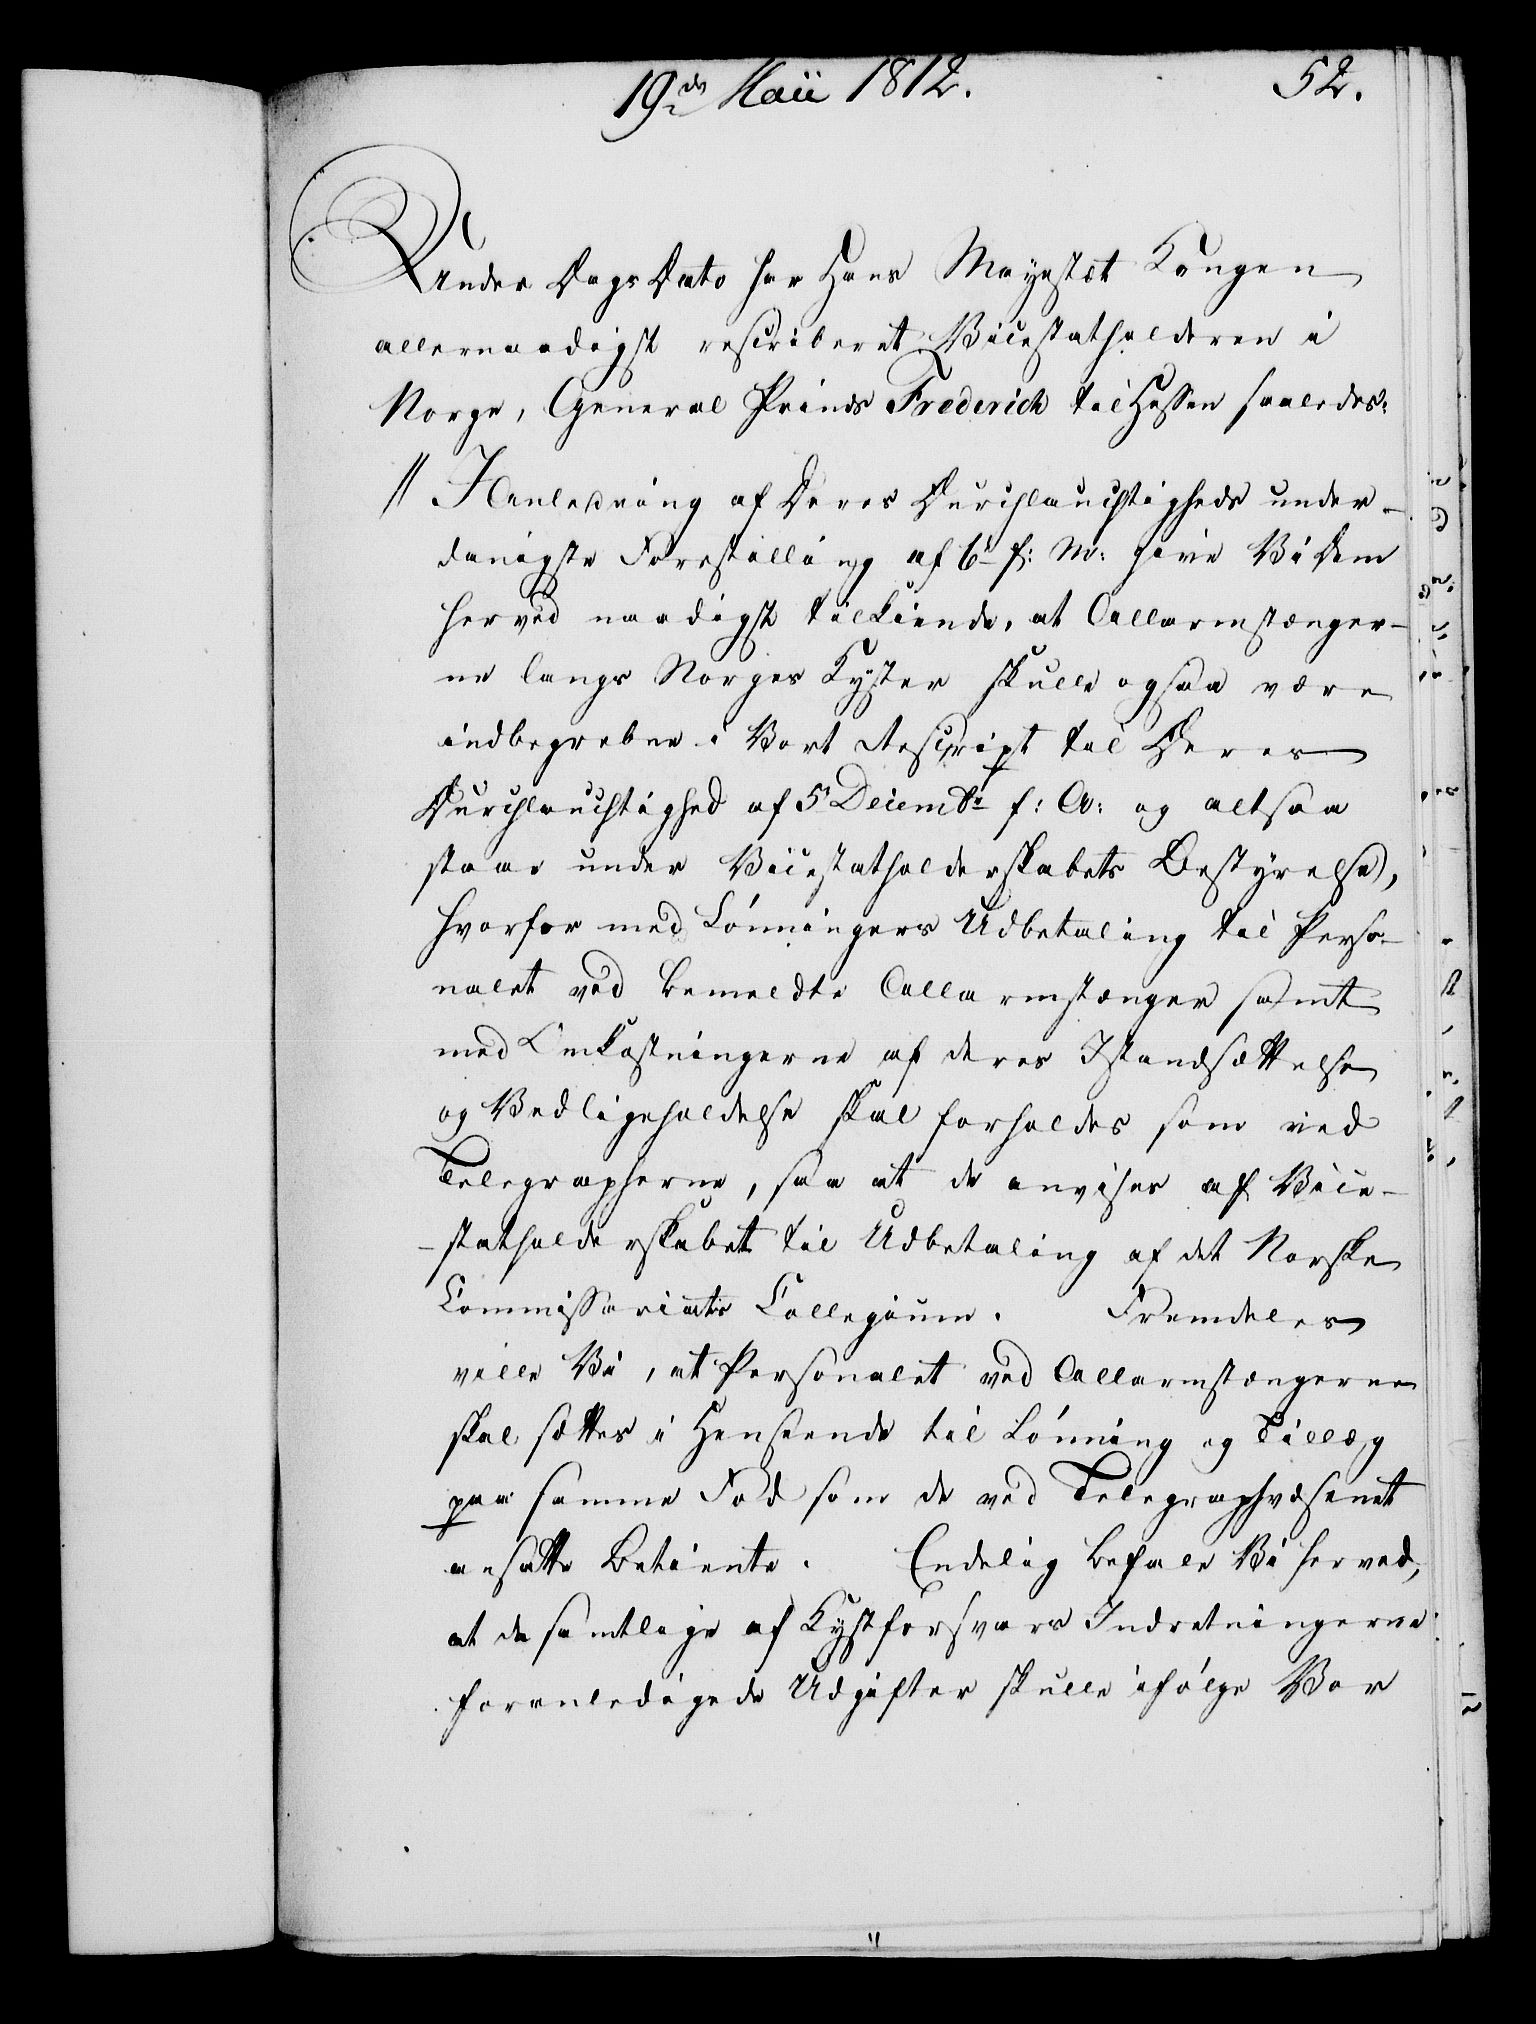 19de Maii 1812.
52.
Under Dags Dato har Hans Mayestæt Kongen
allernaadigst rescriberet Vicestatholderen i
Norge, General Prinds Frederich til Hessen saaledes:
// I Anledning af Deres Durchlauchtigheds under-
danigste Forestilling af 6 f: M: give Vi Dem
herved naadigst tilkiende, at Allarmstænger-
ne langs Norges Kyster skulle ogsaa være
indbegrebne i Vort Rescript til Deres
Durchlauchtighed af 5 Decembr f: A: og altsaa
staae under Vicestatholderskabets Bestyrelse,
hvorfor med Lønningers Udbetaling til Perso-
nalet ved bemeldte Allarmstænger samt
med Omkostningerne af deres Istandsættelse
og Vedligeholdelse skal forholdes som ved
Telegrapherne, saa at de anvises af Vice-
-statholderskabet til Udbetaling af det Norske
Commissariats Collegium. Fremdeles
ville Vi, at Personalet ved Allarmstængerne
skal sættes i Henseende til Lønning og Tillæg
paa samme Fod som de ved Telegraphvæsenet
ansatte Betiente. Endelig befale Vi herved,
at de samtlige af Kystforsvars Indretningerne
foranledigede Udgifter skulle ifølge Vor